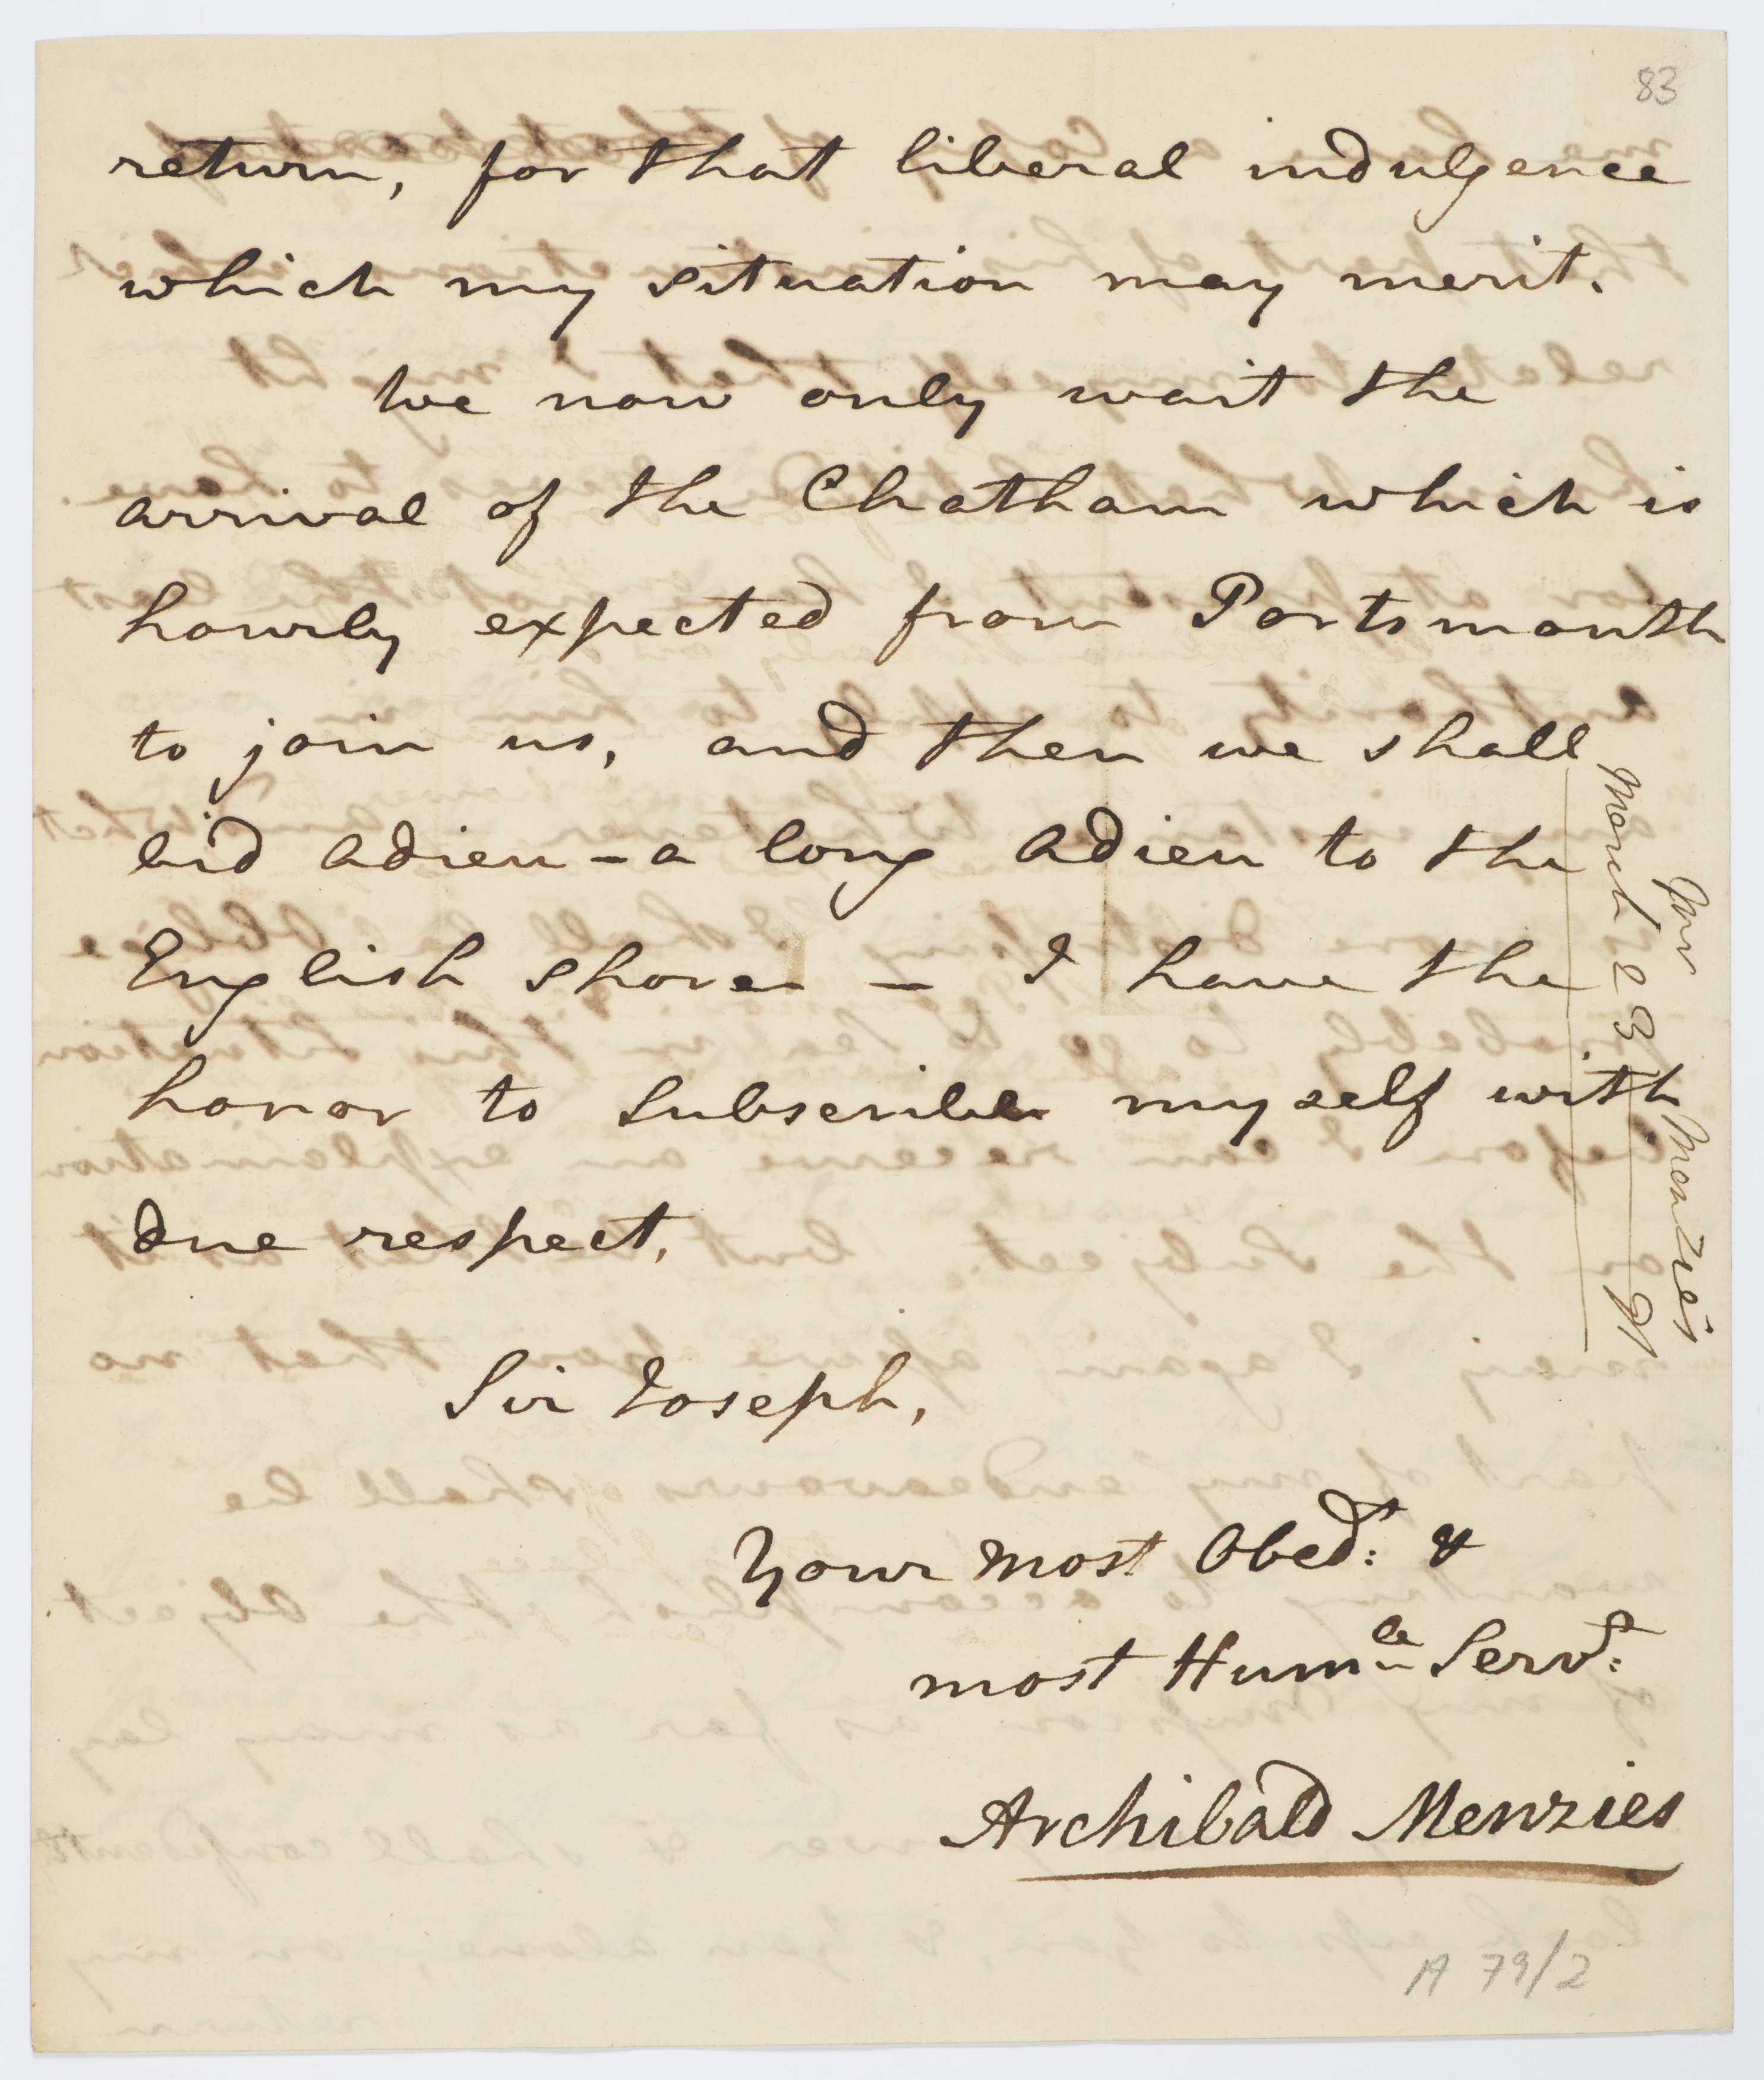 83
return, for that liberal indulgence
which my situation may merit.
We now only wait the
arrival of the Chatham which is
hourly expected from Portsmouth
to join us, and then we shall
bid adieu – a long adieu to the
English shore – I have the
honor to Subscribe myself with
due respect,
Sir Joseph,
Your most Obed.t: &
most Hum.le Serv.t:
Archibald Menzies
March 23 91
Menzies
A 79/2